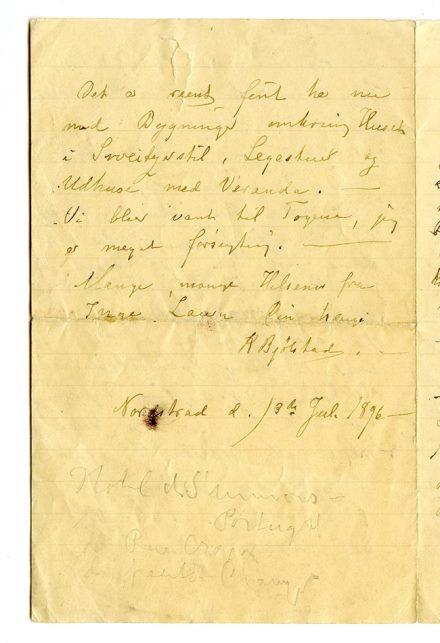 Det er reent fint her nu
med Bygninger omkring Huset
i Sveitserstil, Legestuet og
Udhuse med Veranda. —
Vi blier vant til Togene, jeg
er meget forsigtig. —
Mange mange Hilsener fra
din hengi
R Bjølstad. —
Nordstrad d. 13de Juli 1896 —
Hotel d
Portugal